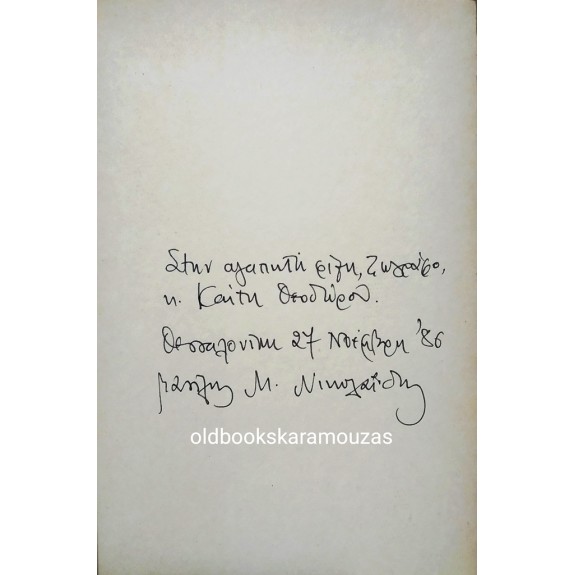 Στην αγαπητή φίλη, ζωγράφο,
κ. Καίτη Θεοδώρου.
Θεσσαλονίκη 27 Νοέμβρη '86
Μανόλης Μ. Νικολαΐδης
oldbookskaramouzas